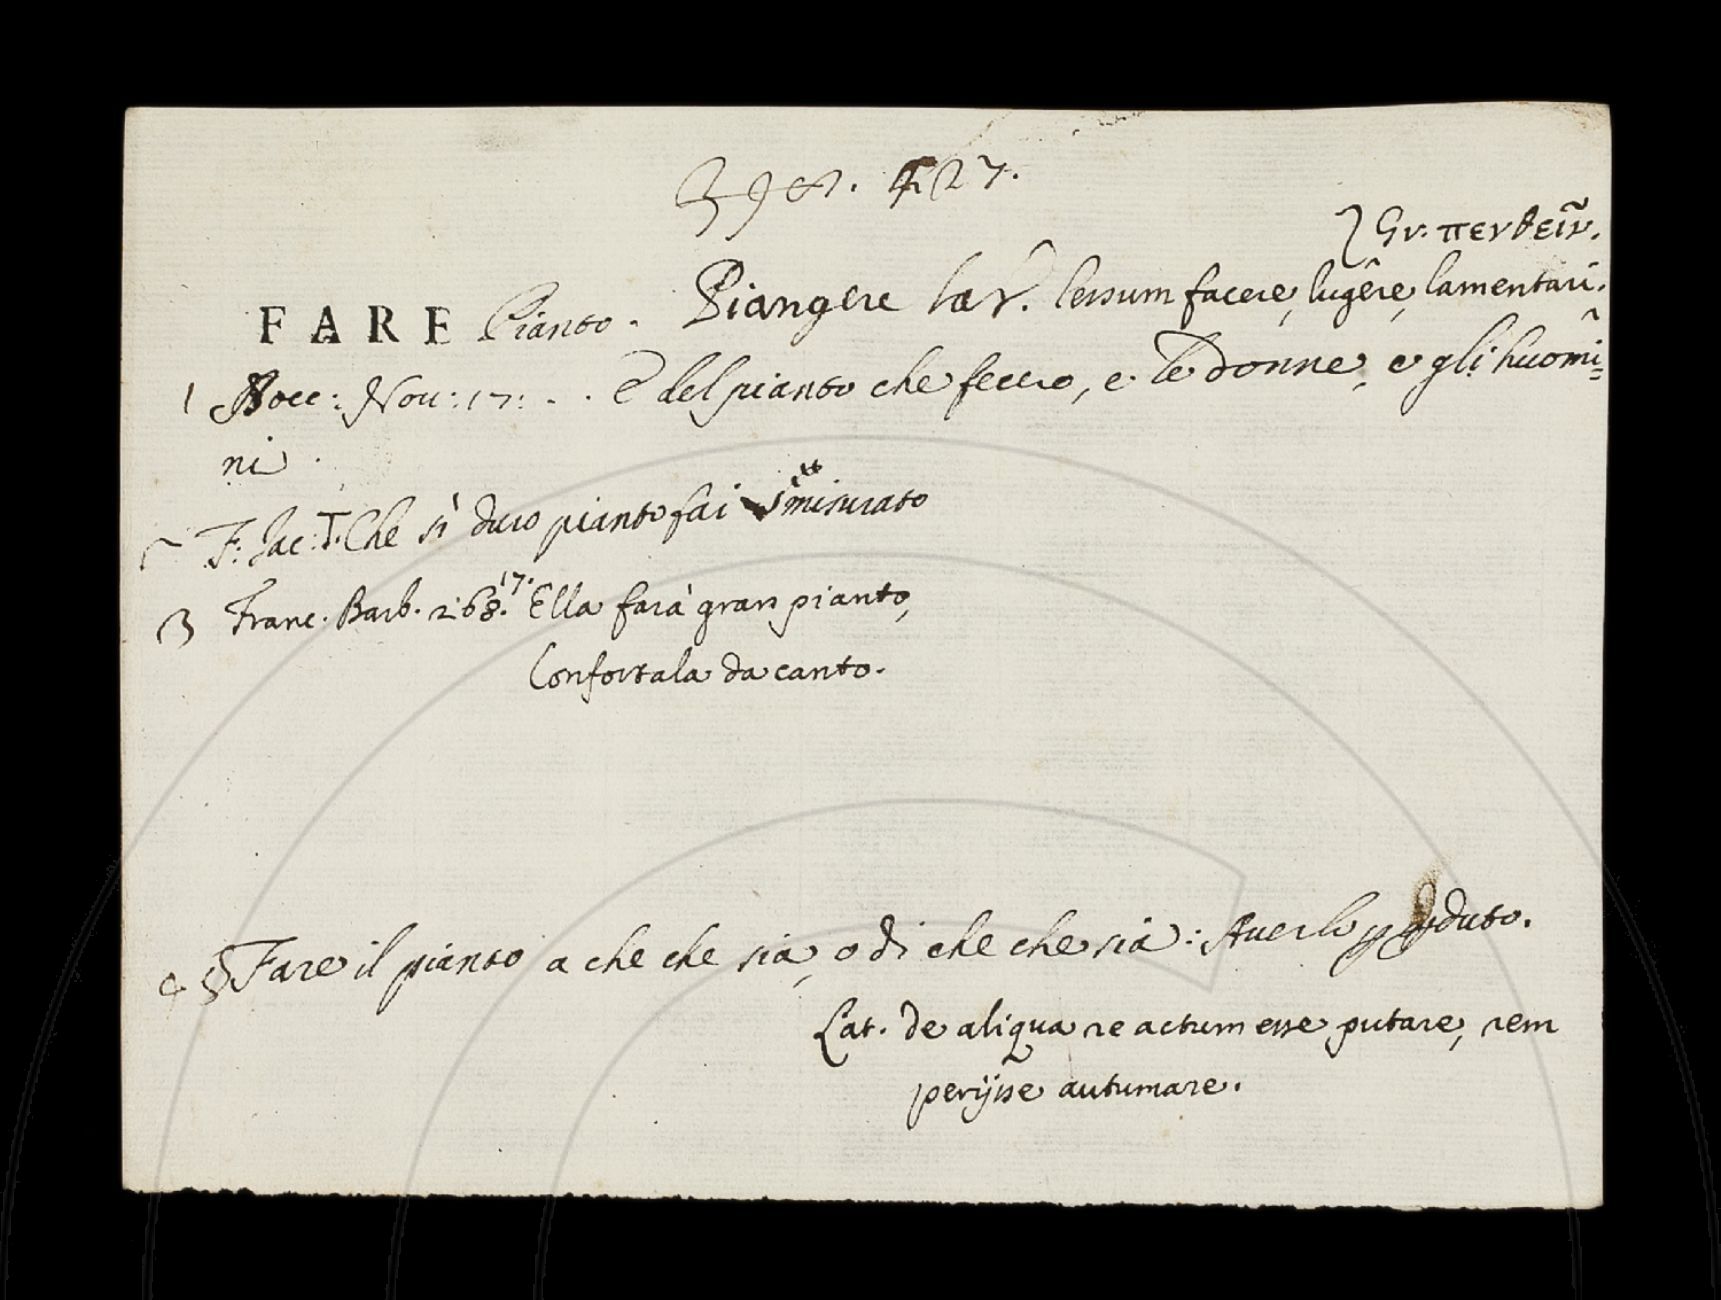 398. 427.
} Gr. πενθεῖν.
FARE Pianto. Piangere lat. lessum facere, lugêre, lamentari.
1 Bocc: Nov: 17: . . E del pianto che fecero, e le donne, e gli huomi=
ni.
2 F. Jac: T. Che sì duro pianto fai smisurato
3 Franc. Barb. 268. 17. Ella farà gran pianto,
Confortala da canto.
4 § Fare il pianto a che che sia, o di che che sia: Averlo perduto.
Lat. de aliqua re actum esse putare, rem
perijsse autumare.